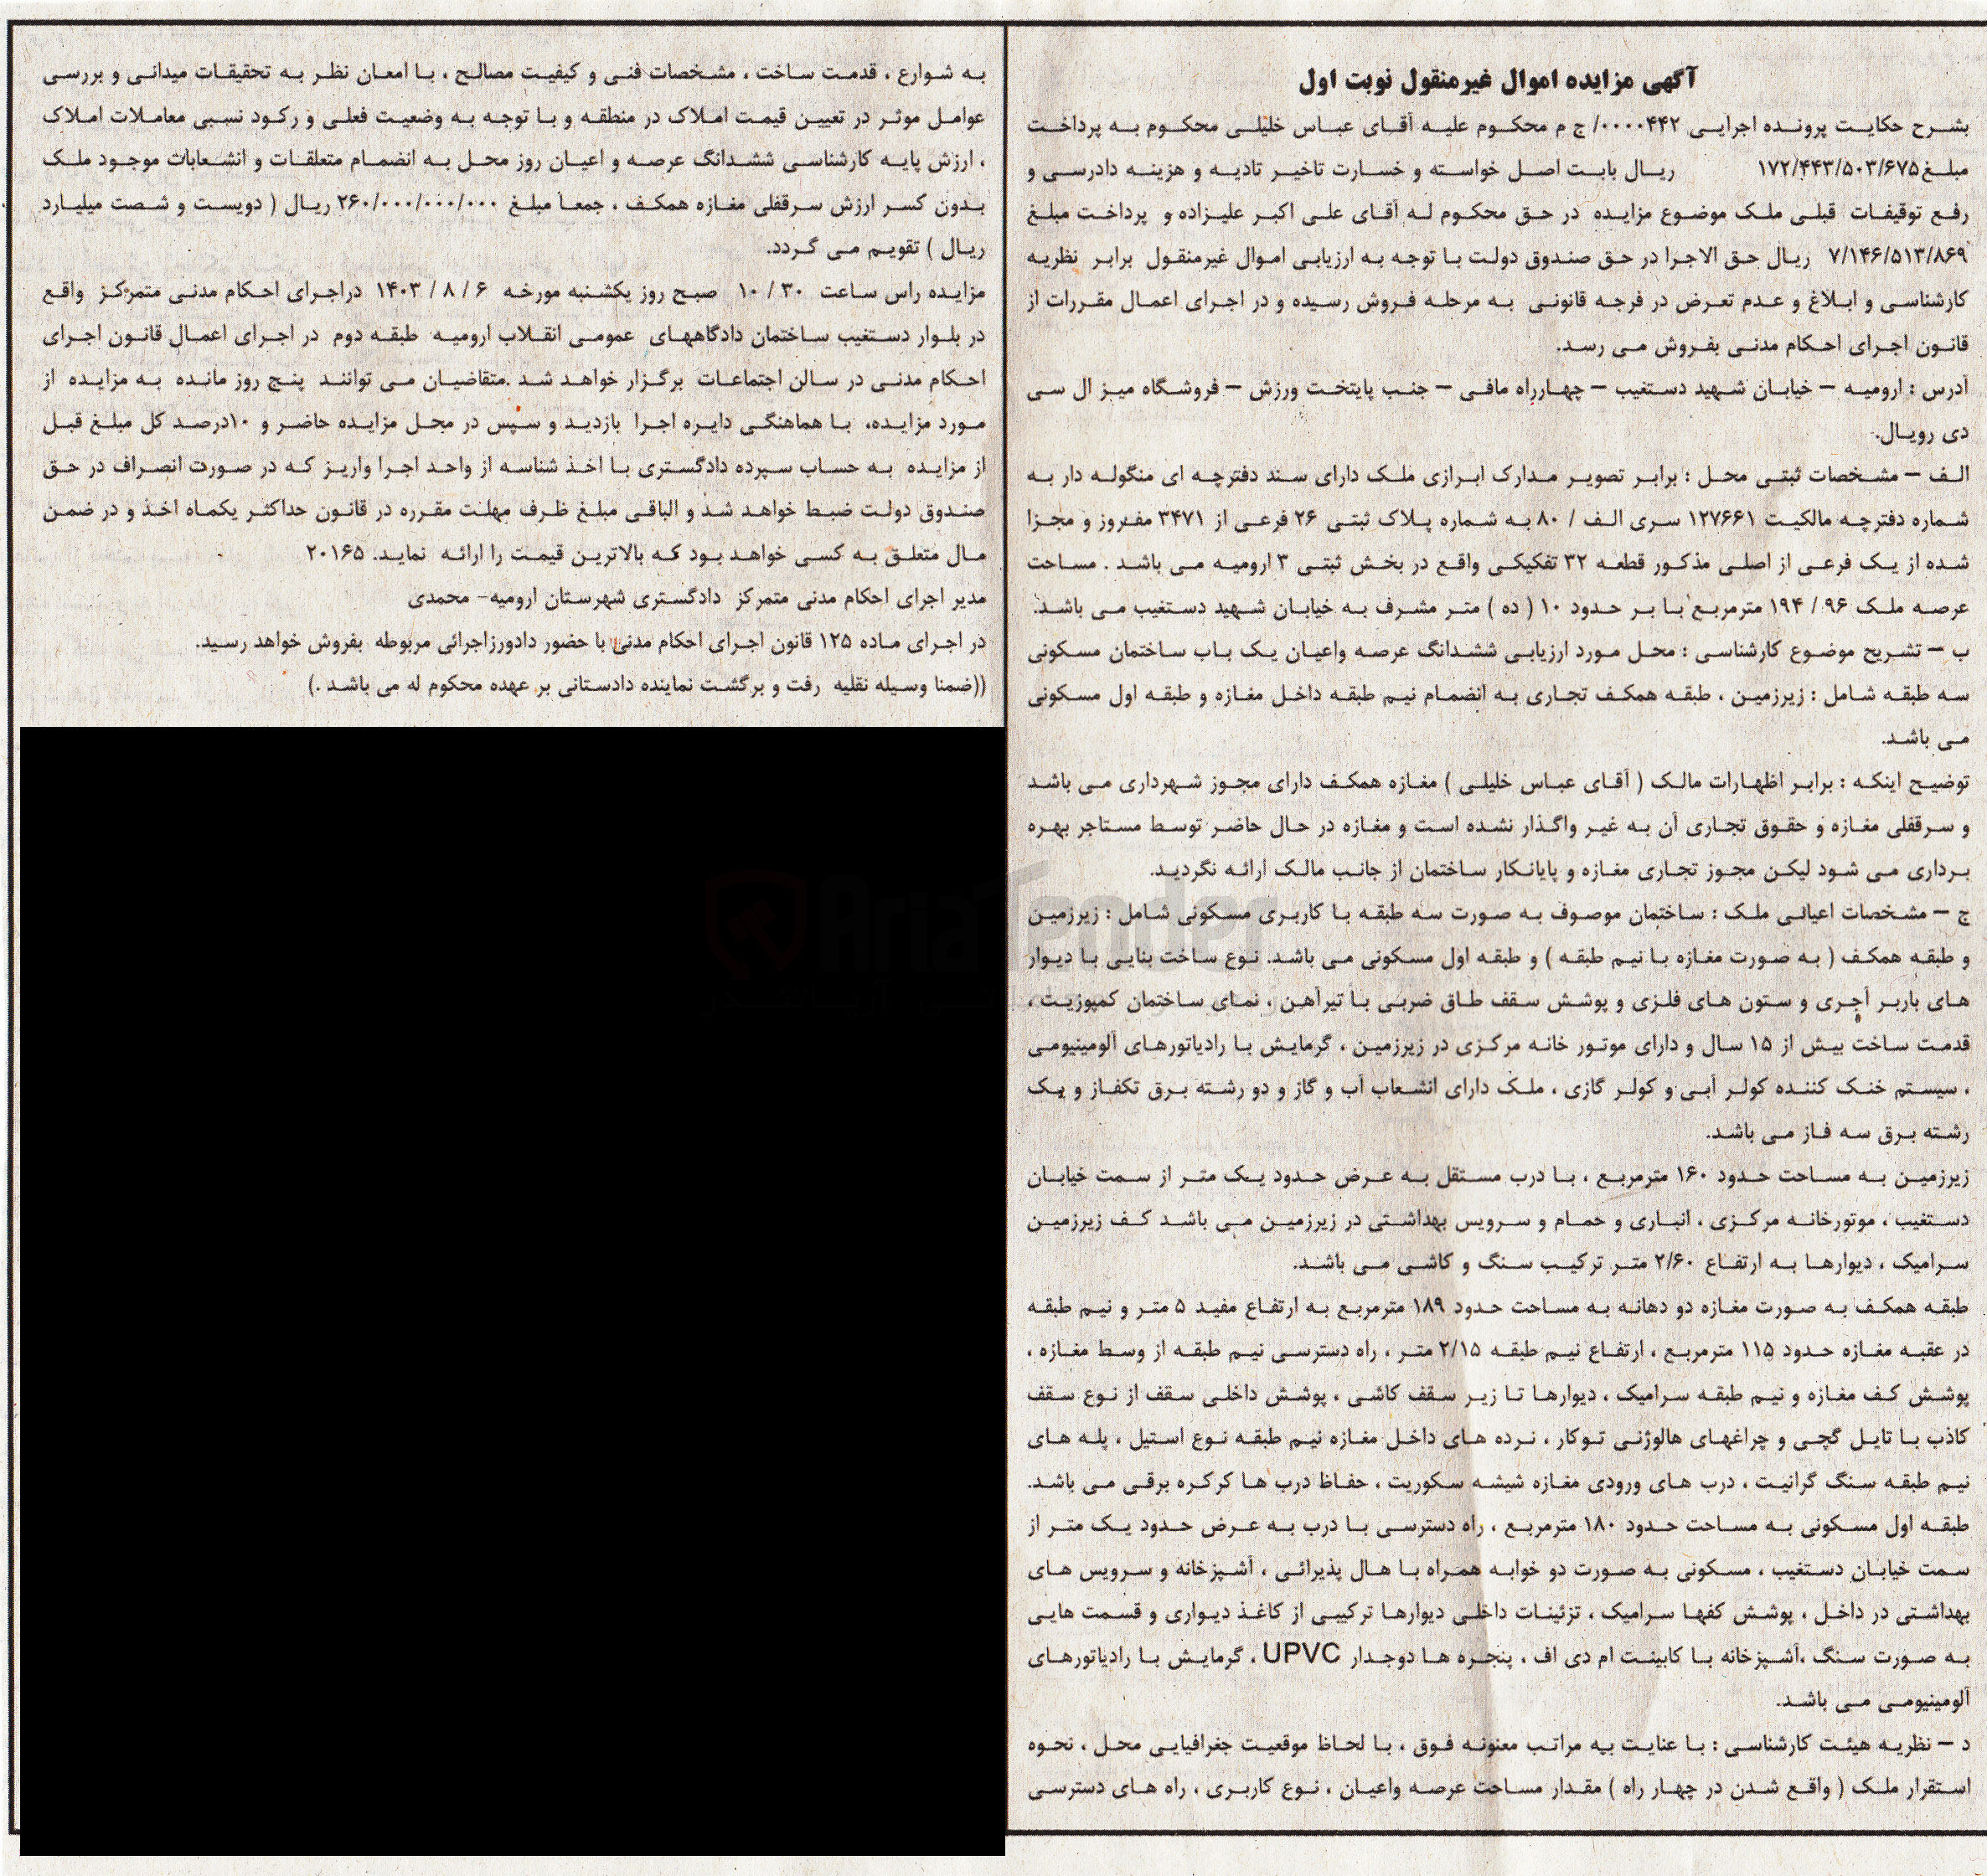 آگهی مزایده اموال غیرمنقول نوبت اول
بشرح حکایت پرونده اجرایی ۰۰۰۰۴۴۲/ ج م محکوم علیه آقای عباس خلیلی محکوم به پرداخت
مبلغ۱۷۲/۴۴۳/۵۰۳/۶۷۵ ریال بابت اصل خواسته و خسارت تاخیر تادیه و هزینه دادرسی و
رفع توقیفات قبلی ملک موضوع مزایده در حق محکوم له آقای علی اکبر علیزاده و پرداخت مبلغ
۷/۱۴۶/۵۱۳/۸۶۹ ریال حق الاجرا در حق صندوق دولت با توجه به ارزیابی اموال غیرمنقول برابر نظریه
کارشناسی و ابلاغ و عدم تعرض در فرجه قانونی به مرحله فروش رسیده و در اجرای اعمال مقررات از
قانون اجرای احکام مدنی بفروش می رسد.
آدرس : ارومیه – خیابان شهید دستغیب – چهارراه مافی – جنب پایتخت ورزش – فروشگاه میز ال سی
دی رویال.
الف – مشخصات ثبتی محل : برابر تصویر مدارک ابرازی ملک دارای سند دفترچه ای منگوله دار به
شماره دفترچه مالکیت ۱۲۷۶۶۱ سری الف / ۸۰ به شماره پلاک ثبتی ۲۶ فرعی از ۳۴۷۱ مفروز و مجزا
شده از یک فرعی از اصلی مذکور قطعه ۳۲ تفکیکی واقع در بخش ثبتی ۳ ارومیه می باشد . مساحت
عرصه ملک ۹۶ / ۱۹۴ مترمربع با بر حدود ۱۰ ( ده ) متر مشرف به خیابان شهید دستغیب می باشد.
ب – تشریح موضوع کارشناسی : محل مورد ارزیابی ششدانگ عرصه واعیان یک باب ساختمان مسکونی
سه طبقه شامل : زیرزمین ، طبقه همکف تجاری به انضمام نیم طبقه داخل مغازه و طبقه اول مسکونی
می باشد.
توضیح اینکه : برابر اظهارات مالک ( آقای عباس خلیلی ) مغازه همکف دارای مجوز شهرداری می باشد
و سرقفلی مغازه و حقوق تجاری آن به غیر واگذار نشده است و مغازه در حال حاضر توسط مستاجر بهره
برداری می شود لیکن مجوز تجاری مغازه و پایانکار ساختمان از جانب مالک ارائه نگردید.
ج – مشخصات اعیانی ملک : ساختمان موصوف به صورت سه طبقه با کاربری مسکونی شامل : زیرزمین
و طبقه همکف ( به صورت مغازه با نیم طبقه ) و طبقه اول مسکونی می باشد. نوع ساخت بنایی با دیوار
های باربر آجری و ستون های فلزی و پوشش سقف طاق ضربی با تیرآهن ، نمای ساختمان کمپوزیت ،
قدمت ساخت بیش از ۱۵ سال و دارای موتور خانه مرکزی در زیرزمین ، گرمایش با رادیاتورهای آلومینیومی
، سیستم خنک کننده کولر آبی و کولر گازی ، ملک دارای انشعاب آب و گاز و دو رشته برق تکفاز و یک
رشته برق سه فاز می باشد.
زیرزمین به مساحت حدود ۱۶۰ مترمربع ، با درب مستقل به عرض حدود یک متر از سمت خیابان
دستغیب ، موتورخانه مرکزی ، انباری و حمام و سرویس بهداشتی در زیرزمین می باشد کف زیرزمین
سرامیک ، دیوارها به ارتفاع ۲/۶۰ متر ترکیب سنگ و کاشی می باشد.
طبقه همکف به صورت مغازه دو دهانه به مساحت حدود ۱۸۹ مترمربع به ارتفاع مفید ۵ متر و نیم طبقه
در عقبه مغازه حدود ۱۱۵ مترمربع ، ارتفاع نیم طبقه ۲/۱۵ متر ، راه دسترسی نیم طبقه از وسط مغازه ،
پوشش کف مغازه و نیم طبقه سرامیک ، دیوارها تا زیر سقف کاشی ، پوشش داخلی سقف از نوع سقف
کاذب با تایل گچی و چراغهای هالوژنی توکار ، نرده های داخل مغازه نیم طبقه نوع استیل ، پله های
نیم طبقه سنگ گرانیت ، درب های ورودی مغازه شیشه سکوریت ، حفاظ درب ها کرکره برقی می باشد.
طبقه اول مسکونی به مساحت حدود ۱۸۰ مترمربع ، راه دسترسی با درب به عرض حدود یک متر از
سمت خیابان دستغیب ، مسکونی به صورت دو خوابه همراه با هال پذیرائی ، آشپزخانه و سرویس های
بهداشتی در داخل ، پوشش کفها سرامیک ، تزئینات داخلی دیوارها ترکیبی از کاغذ دیواری و قسمت هایی
به صورت سنگ ،آشپزخانه با کابینت ام دی اف ، پنجره ها دوجدار UPVC ، گرمایش با رادیاتورهای
آلومینیومی می باشد.
د – نظریه هیئت کارشناسی : با عنایت به مراتب معنونه فوق ، با لحاظ موقعیت جغرافیایی محل ، نحوه
استقرار ملک ( واقع شدن در چهار راه ) مقدار مساحت عرصه واعیان ، نوع کاربری ، راه های دسترسی
به شوارع ، قدمت ساخت ، مشخصات فنی و کیفیت مصالح ، با امعان نظر به تحقیقات میدانی و بررسی
عوامل موثر در تعیین قیمت املاک در منطقه و با توجه به وضعیت فعلی و رکود نسبی معاملات املاک
، ارزش پایه کارشناسی ششدانگ عرصه و اعیان روز محل به انضمام متعلقات و انشعابات موجود ملک
بدون کسر ارزش سرقفلی مغازه همکف ، جمعا مبلغ ۲۶۰/۰۰۰/۰۰۰/۰۰۰ ریال ( دویست و شصت میلیارد
ریال ) تقویم می گردد.
مزایده راس ساعت ۳۰ / ۱۰ صبح روز یکشنبه مورخه ۶ / ۸ / ۱۴۰۳ دراجرای احکام مدنی متمرکز واقع
در بلوار دستغیب ساختمان دادگاههای عمومی انقلاب ارومیه طبقه دوم در اجرای اعمال قانون اجرای
احکام مدنی در سالن اجتماعات برگزار خواهد شد .متقاضیان می توانند پنج روز مانده به مزایده از
مورد مزایده، با هماهنگی دایره اجرا بازدید و سپس در محل مزایده حاضر و ۱۰درصد کل مبلغ قبل
از مزایده به حساب سپرده دادگستری با اخذ شناسه از واحد اجرا واریز که در صورت انصراف در حق
صندوق دولت ضبط خواهد شد و الباقی مبلغ ظرف مهلت مقرره در قانون حداکثر یکماه اخذ و در ضمن
مال متعلق به کسی خواهد بود که بالاترین قیمت را ارائه نماید. ۲۰۱۶۵
مدیر اجرای احکام مدنی متمرکز دادگستری شهرستان ارومیه- محمدی
در اجرای ماده ۱۲۵ قانون اجرای احکام مدنی با حضور دادورزاجرائی مربوطه بفروش خواهد رسید.
((ضمنا وسیله نقلیه رفت و برگشت نماینده دادستانی بر عهده محکوم له می باشد .)
AriaTender